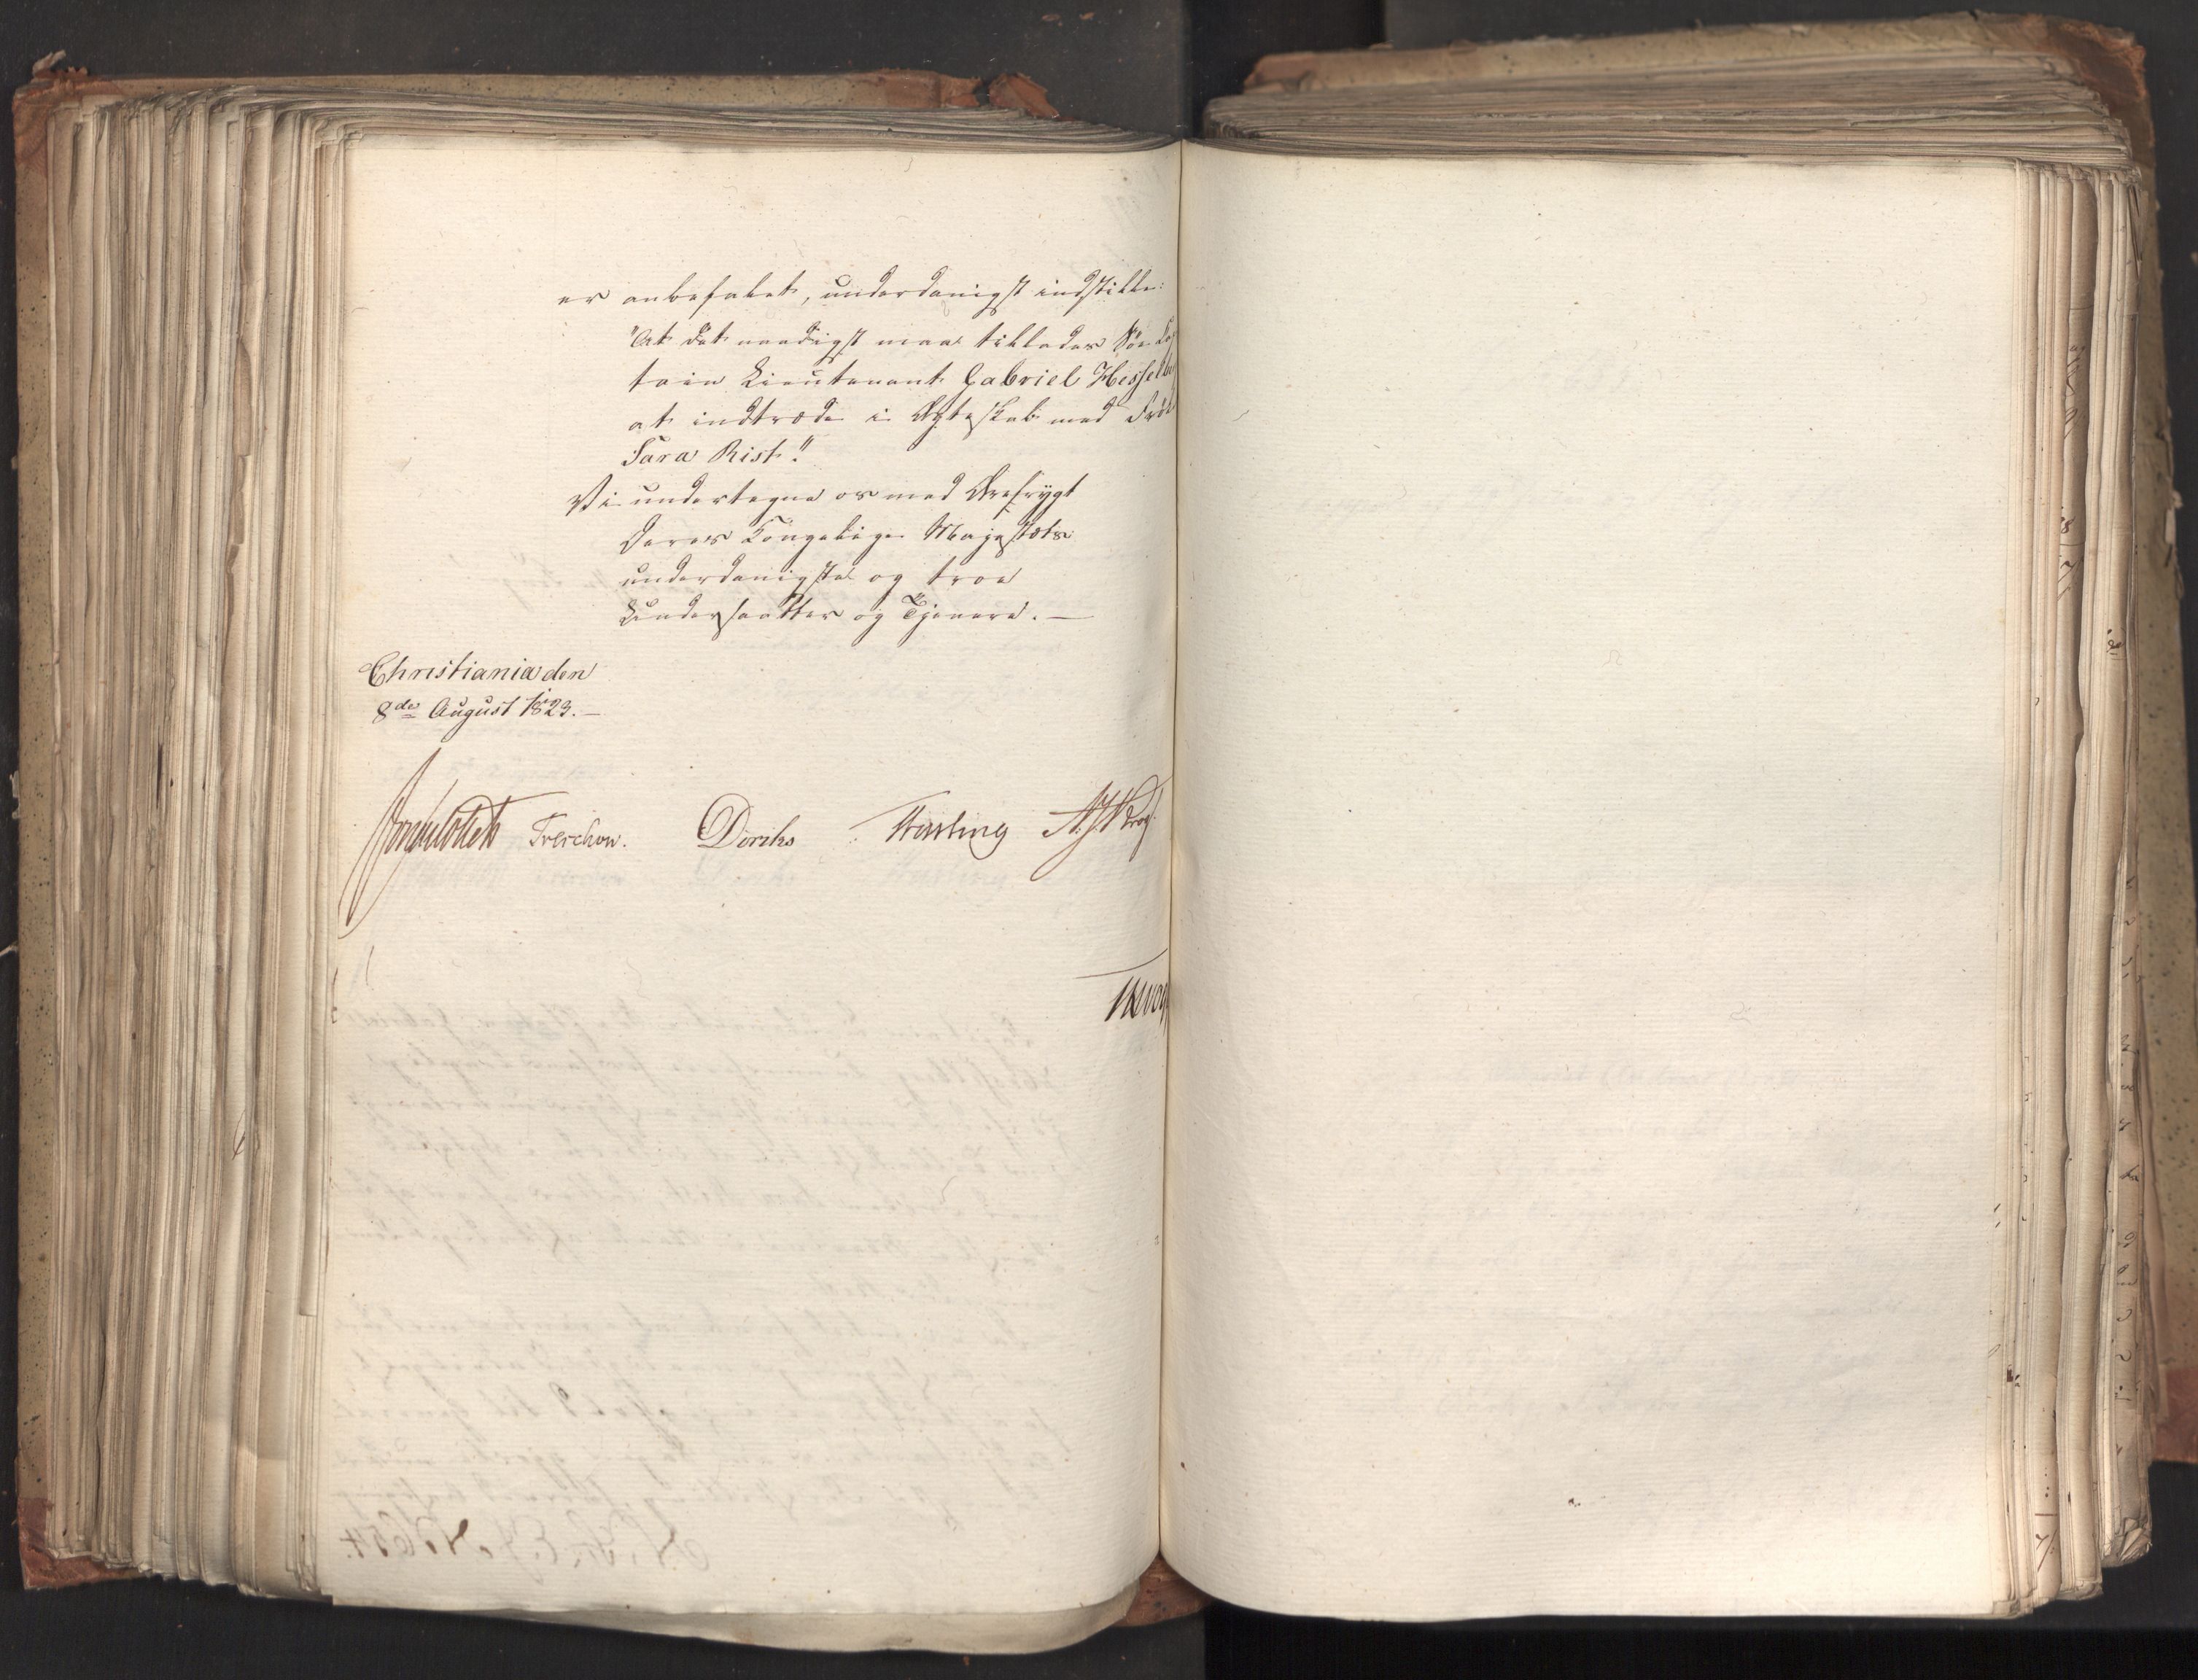 er anbefalet, underdanigst indstille:
"At det naadigst maa tillades Söe Cap
tain Lieutenant Gabriel Hesselbe
at indtræde i Ægteskab med Frök
Sara Rist."
Vi undertegne os med Ærefrygt
Deres Kongelige Majestæts
underdanigste og troe
Undersaatter og Tjenere. —
Christiania den
8de August 1823. —
Sommerhielm Treschow. Diriks Fasting A. J. Krog
TKrog